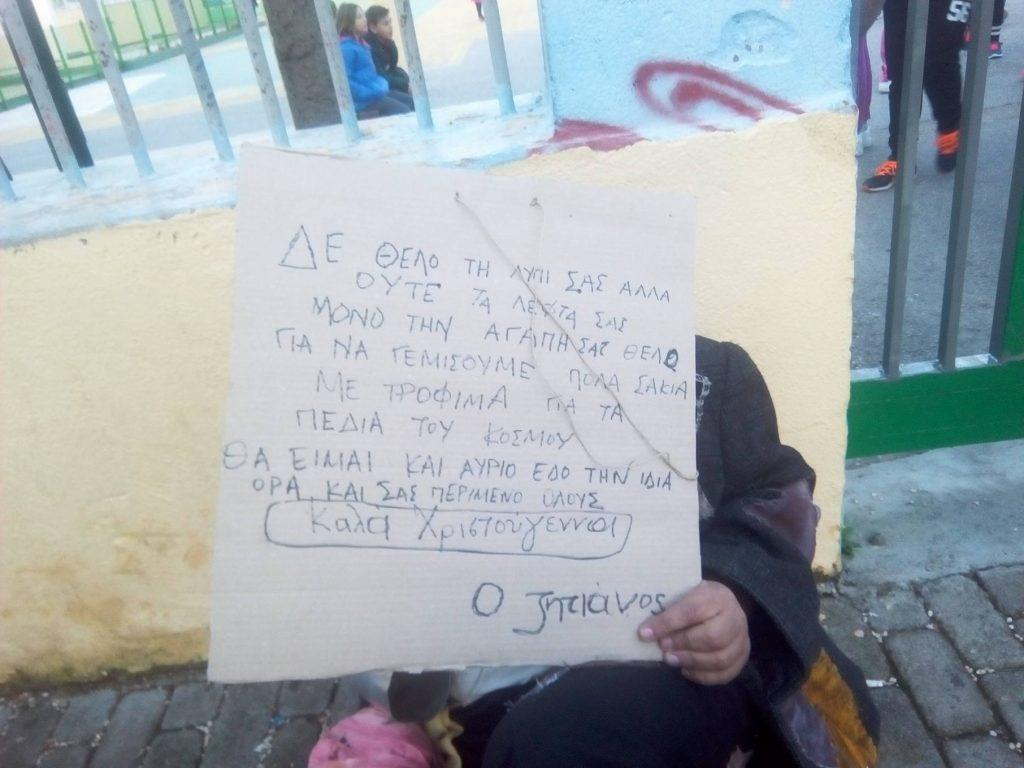 ΔΕ ΘΕΛΟ ΤΗ ΛΥΠΙ ΣΑΣ ΑΛΛΑ
ΟΥΤΕ ΤΑ ΛΕΦΤΑ ΣΑΣ
ΜΟΝΟ ΤΗΝ ΑΓΑΠΗ ΣΑΣ ΘΕΛΟ
ΓΙΑ ΝΑ ΓΕΜΙΣΟΥΜΕ ΠΟΛΑ ΣΑΚΙΑ
ΜΕ ΤΡΟΦΙΜΑ ΓΙΑ ΤΑ
ΠΕΔΙΑ ΤΟΥ ΚΟΣΜΟΥ
ΘΑ ΕΙΜΑΙ ΚΑΙ ΑΥΡΙΟ ΕΔΟ ΤΗΝ ΙΔΙΑ
ΟΡΑ ΚΑΙ ΣΑΣ ΠΕΡΙΜΕΝΟ ΟΛΟΥΣ
Καλα Χριστούγεννα
Ο ζητιάνος